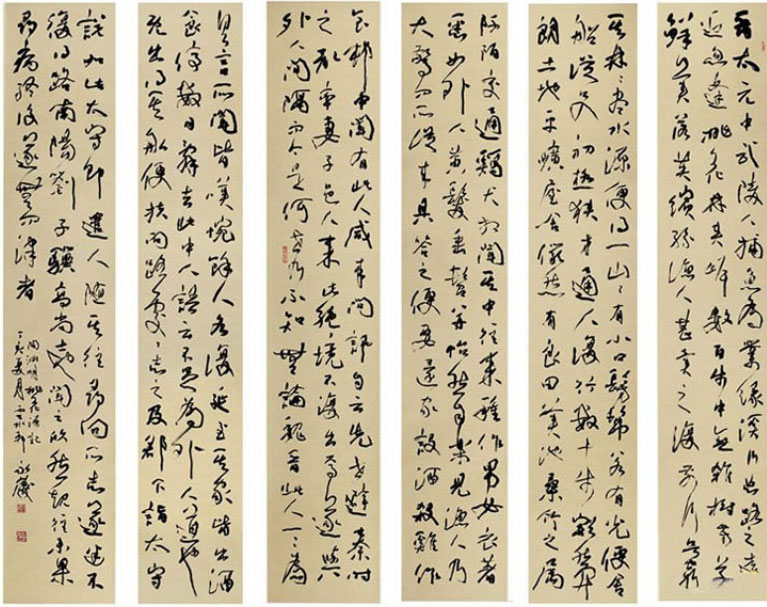 晋太元中武陵人捕魚為業緣溪行忘路之遠
近忽逢桃花林夾岸數百步中無雜樹芳草
鮮美落英繽紛漁人甚異之復前行欲窮
其林林盡水源便得一山山有小口髣髴若有光便舍
船從口入初極狹才通人復行數十步豁然開
朗土地平曠屋舍儼然有良田美池桑竹之屬
阡陌交通雞犬相聞其中往來種作男女衣著
悉如外人黃髮垂髫並怡然自樂見漁人乃
大驚問所從來具答之便要還家設酒殺雞作
食村中聞有此人咸來問訊自云先世避秦時
之亂率妻子邑人來此絕境不復出焉遂與
外人間隔問今是何世乃不知無論魏晉此人一一為
具言所聞皆嘆惋餘人各復延至其家皆出酒
食停數日辭去此中人語云不足為外人道也
既出得其船便扶向路處處志之及郡下詣太守
說如此太守即遣人隨其往尋向所志遂迷不
復得路南陽劉子驥高尚士也聞之欣然規往未果
尋病終後遂無問津者
陶淵明桃花源記
丁亥夏月